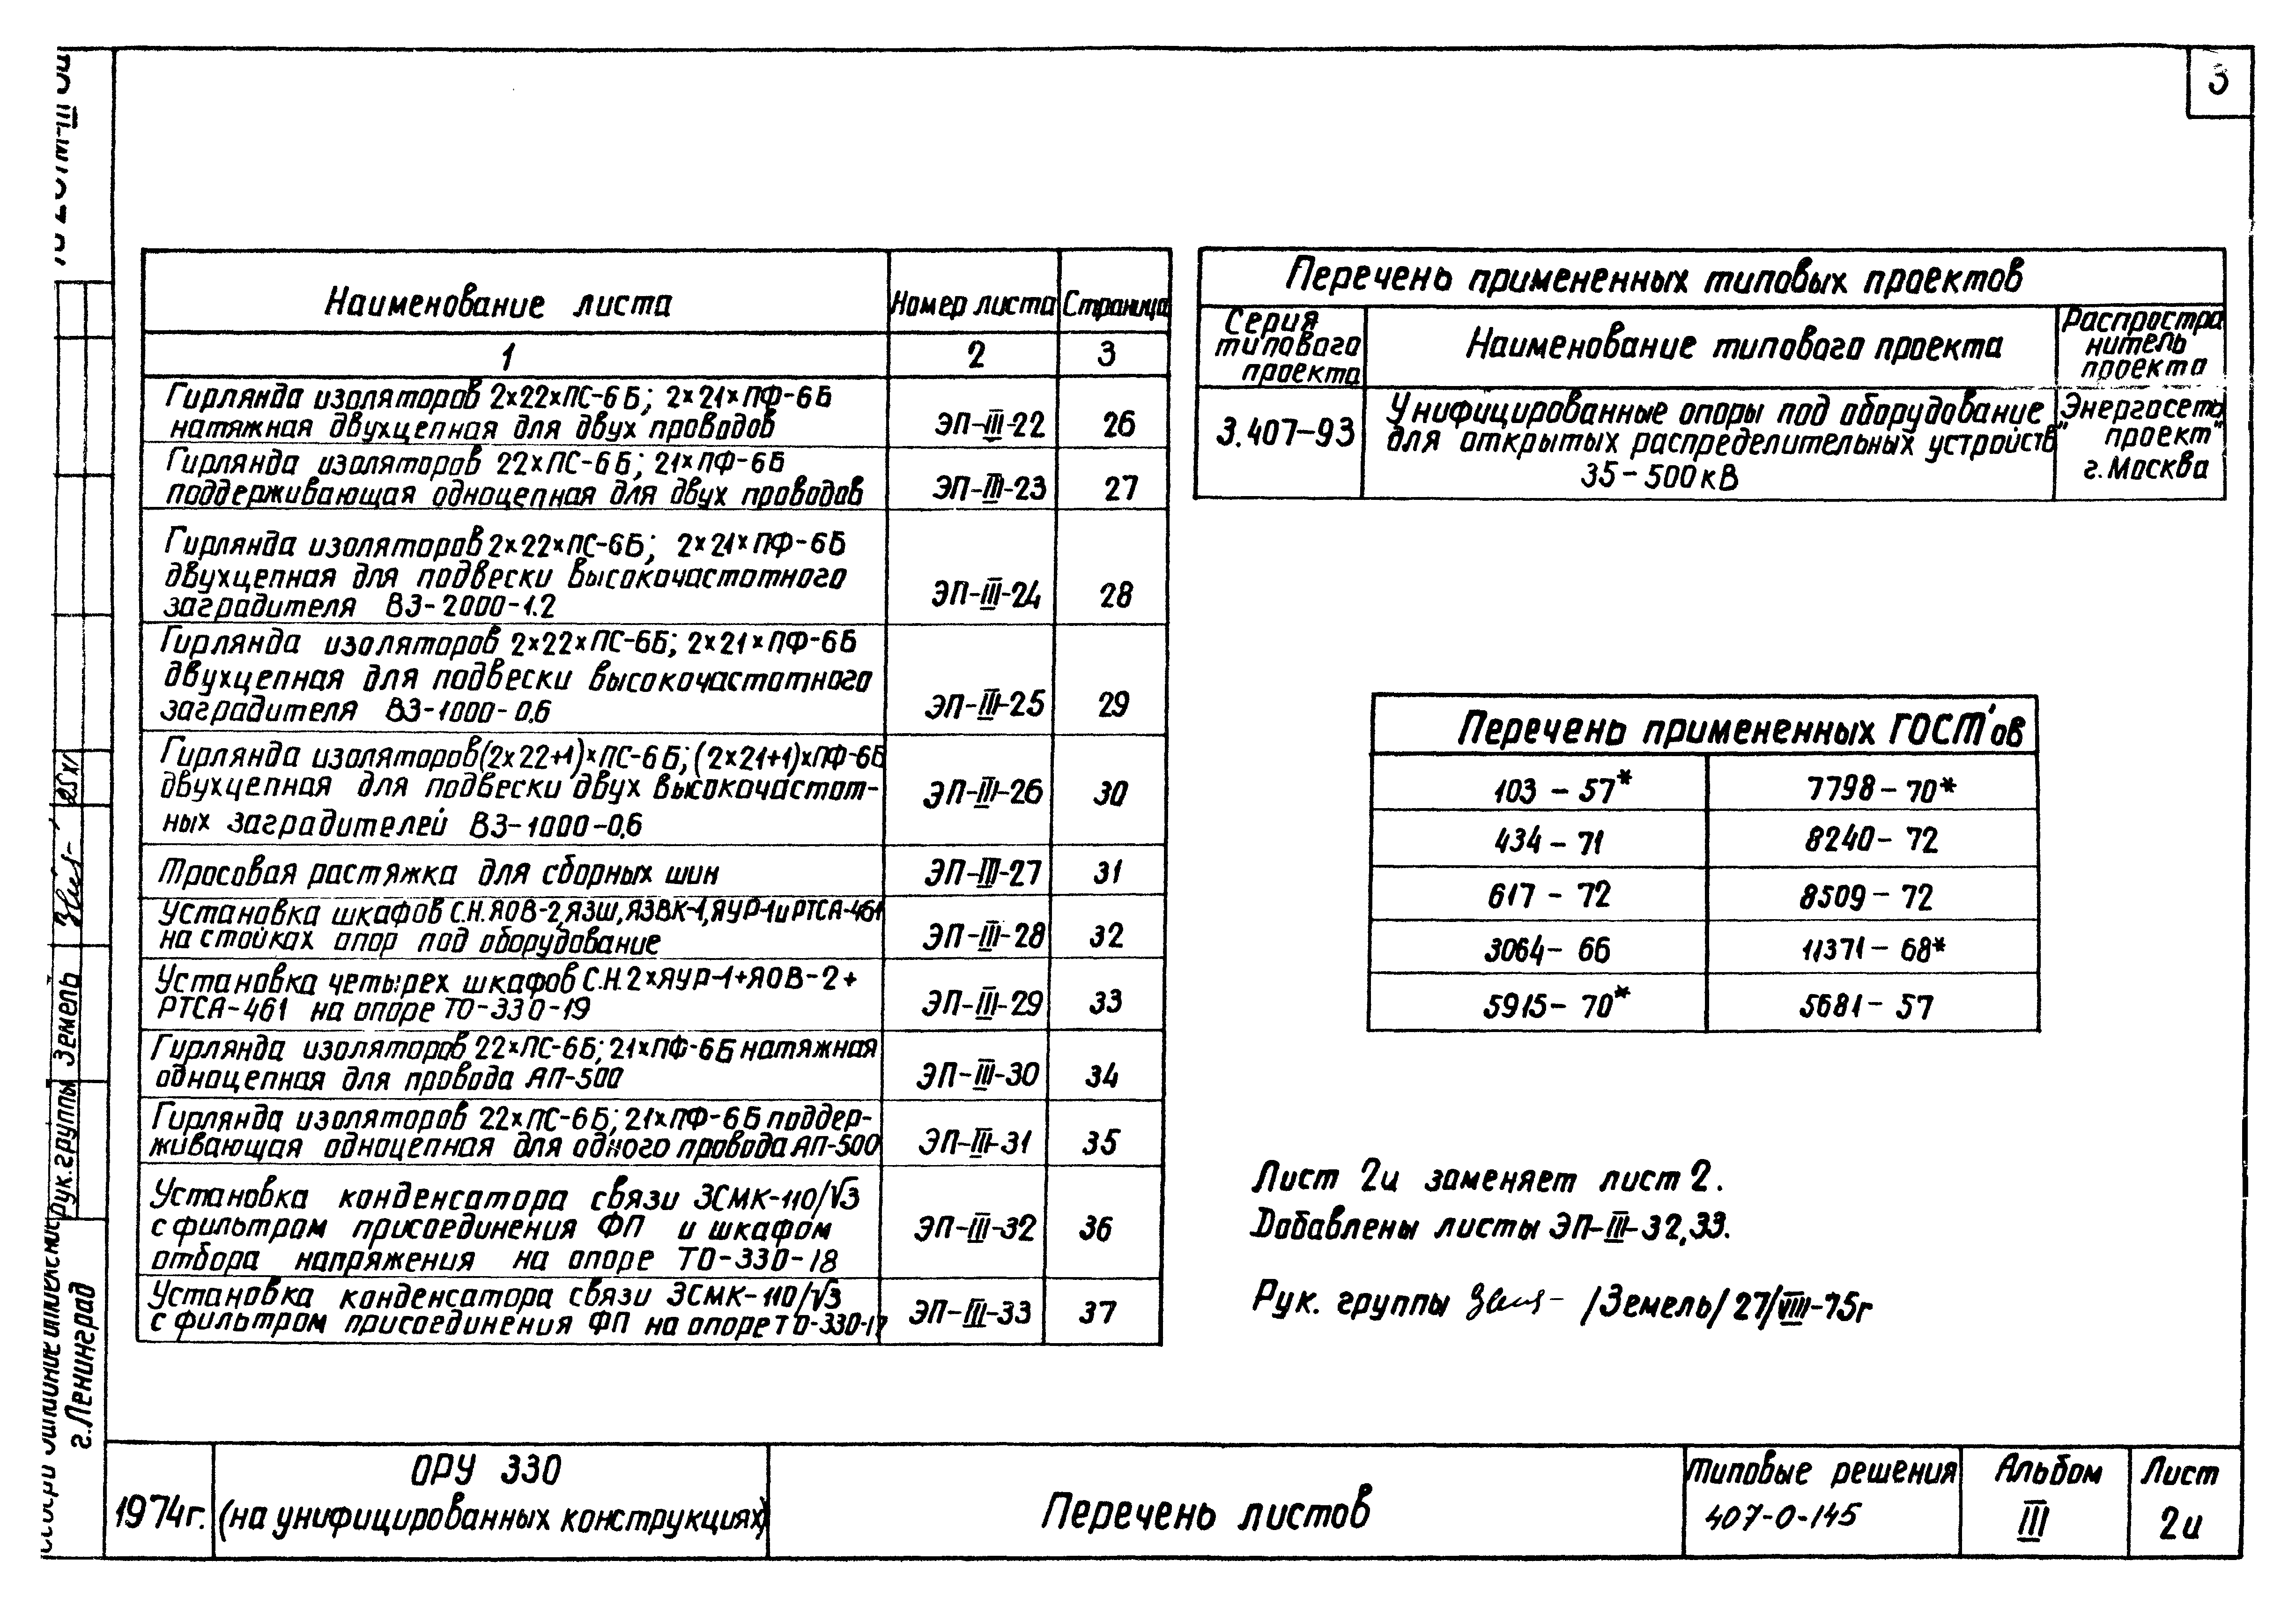 3
Наименование листа
Номер листа
Страница
1
2
3
Гирлянда изоляторов 2х22хПС-6Б; 2х21хПФ-6Б
натяжная двухцепная для двух проводов
ЭП-III-22
26
Гирлянда изоляторов 22хПС-6Б; 21хПФ-6Б
поддерживающая одноцепная для двух проводов
ЭП-III-23
27
Гирлянда изоляторов 2х22хПС-6Б; 2х21хПФ-6Б
двухцепная для подвески высокочастотного
заградителя ВЗ-2000-1.2
ЭП-III-24
28
Гирлянда изоляторов 2х22хПС-6Б; 2х21хПФ-6Б
двухцепная для подвески высокочастотного
заградителя ВЗ-1000-0.6
ЭП-III-25
29
Гирлянда изоляторов(2х22+1)хПС-6Б; (2х21+1)хПФ-6Б
двухцепная для подвески двух высокочастот-
ных заградителей ВЗ-1000-0,6
ЭП-III-26
30
Тросовая растяжка для сборных шин
ЭП-III-27
31
Установка шкафов С.Н. ЯОВ-2, ЯЗШ, ЯЗВК-1, ЯУР-1 и РТСА-461
на стойках опор под оборудование
ЭП-III-28
32
Установка четырех шкафов С.Н. 2хЯУР-1+ЯОВ-2+
РТСА-461 на опоре ТО-330-19
ЭП-III-29
33
Гирлянда изоляторов 22хПС-6Б; 21хПФ-6Б натяжная
одноцепная для провода АП-500
ЭП-III-30
34
Гирлянда изоляторов 22хПС-6Б; 21хПФ-6Б поддер-
живающая одноцепная для одного провода АП-500
ЭП-III-31
35
Установка конденсатора связи 3СМК-110/√3
с фильтром присоединения ФП и шкафом
отбора напряжения на опоре ТО-330-18
ЭП-III-32
36
Установка конденсатора связи 3СМК-110/√3
с фильтром присоединения ФП на опоре ТО-330-17
ЭП-III-33
37
Перечень примененных типовых проектов
Серия
типового
проекта
Наименование типового проекта
Распростра
нитель
проекта
3.407-93
Унифицированные опоры под оборудование
для открытых распределительных устройств
35-500 кВ
"Энергосеть
проект"
г. Москва
Перечень примененных ГОСТ'ов
103 - 57*
7798 - 70*
434 - 71
8240 - 72
617 - 72
8509 - 72
3064 - 66
11371 - 68*
5915 - 70*
5681 - 57
Лист 2и заменяет лист 2.
Добавлены листы ЭП-III-32,33.
Рук. группы /Земель/ 27/VIII-75г
Рук. группы Земель
г. Ленинград
1974г.
ОРУ 330
(на унифицированных конструкциях)
Перечень листов
Типовые решения
407-0-145
Альбом
III
Лист
2и